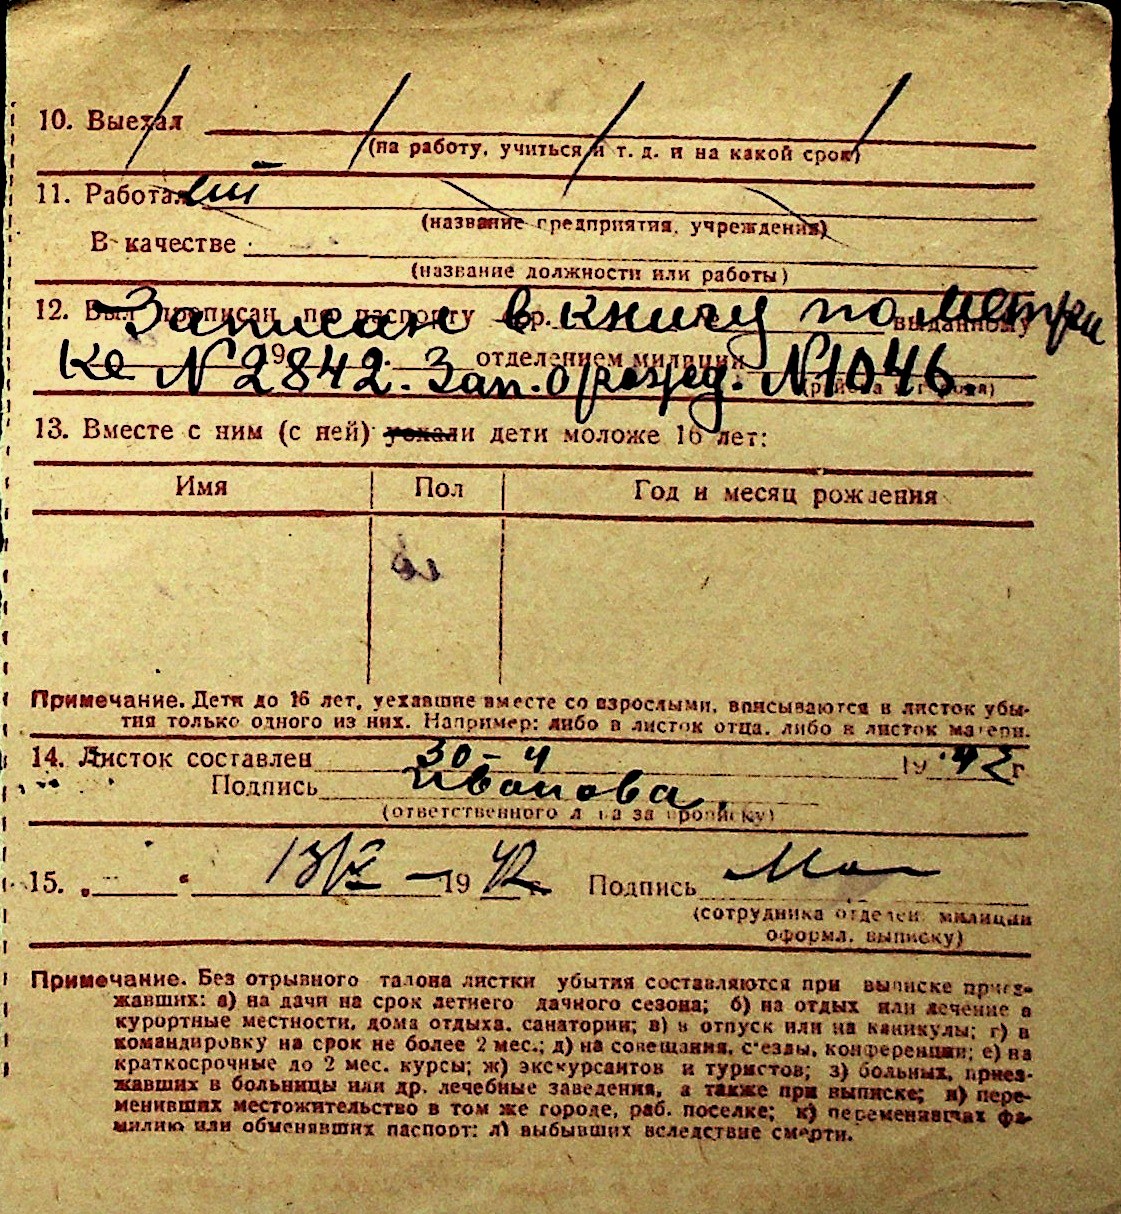 10. Выехал
(на работу, учиться и т. д. и на какой срок)
11. Работал
(название предприятия, учреждения)
В качестве
(название должности или работы)
12. Был прописан по паспорту выданному
Записан в книгу по метри
19 отделением милиции
ке № 2842. Зап. о рожд. № 1046.
(района и города)
13. Вместе с ним (с ней) уехали дети моложе 16 лет:
Имя Пол Год и месяц рождения
Примечание. Дети до 16 лет, уехавшие вместе со взрослыми, вписываются в листок убы-
тия только одного из них. Например: либо в листок отца, либо в листок матери.
14. Листок составлен 30-4 1942 г
Подпись Иванова.
(ответственного лица за прописку)
15. „ “ 13/V - 1942 г. Подпись
(сотрудника отделен. милиции
оформл. выписку)
Примечание. Без отрывного талона листки убытия составляются при выписке приез-
жавших: а) на дачи на срок летнего дачного сезона; б) на отдых или лечение в
курортные местности, дома отдыха, санатории; в) в отпуск или на каникулы; г) в
командировку на срок не более 2 мес.; д) на совещания, с'езды, конференции; е) на
краткосрочные до 2 мес. курсы; ж) экскурсантов и туристов; з) больных, приез-
жавших в больницы или др. лечебные заведения, а также при выписке; и) пере-
менивших местожительство в том же городе, раб. поселке; к) переменивших фа-
милию или обменявших паспорт; л) выбывших вследствие смерти.